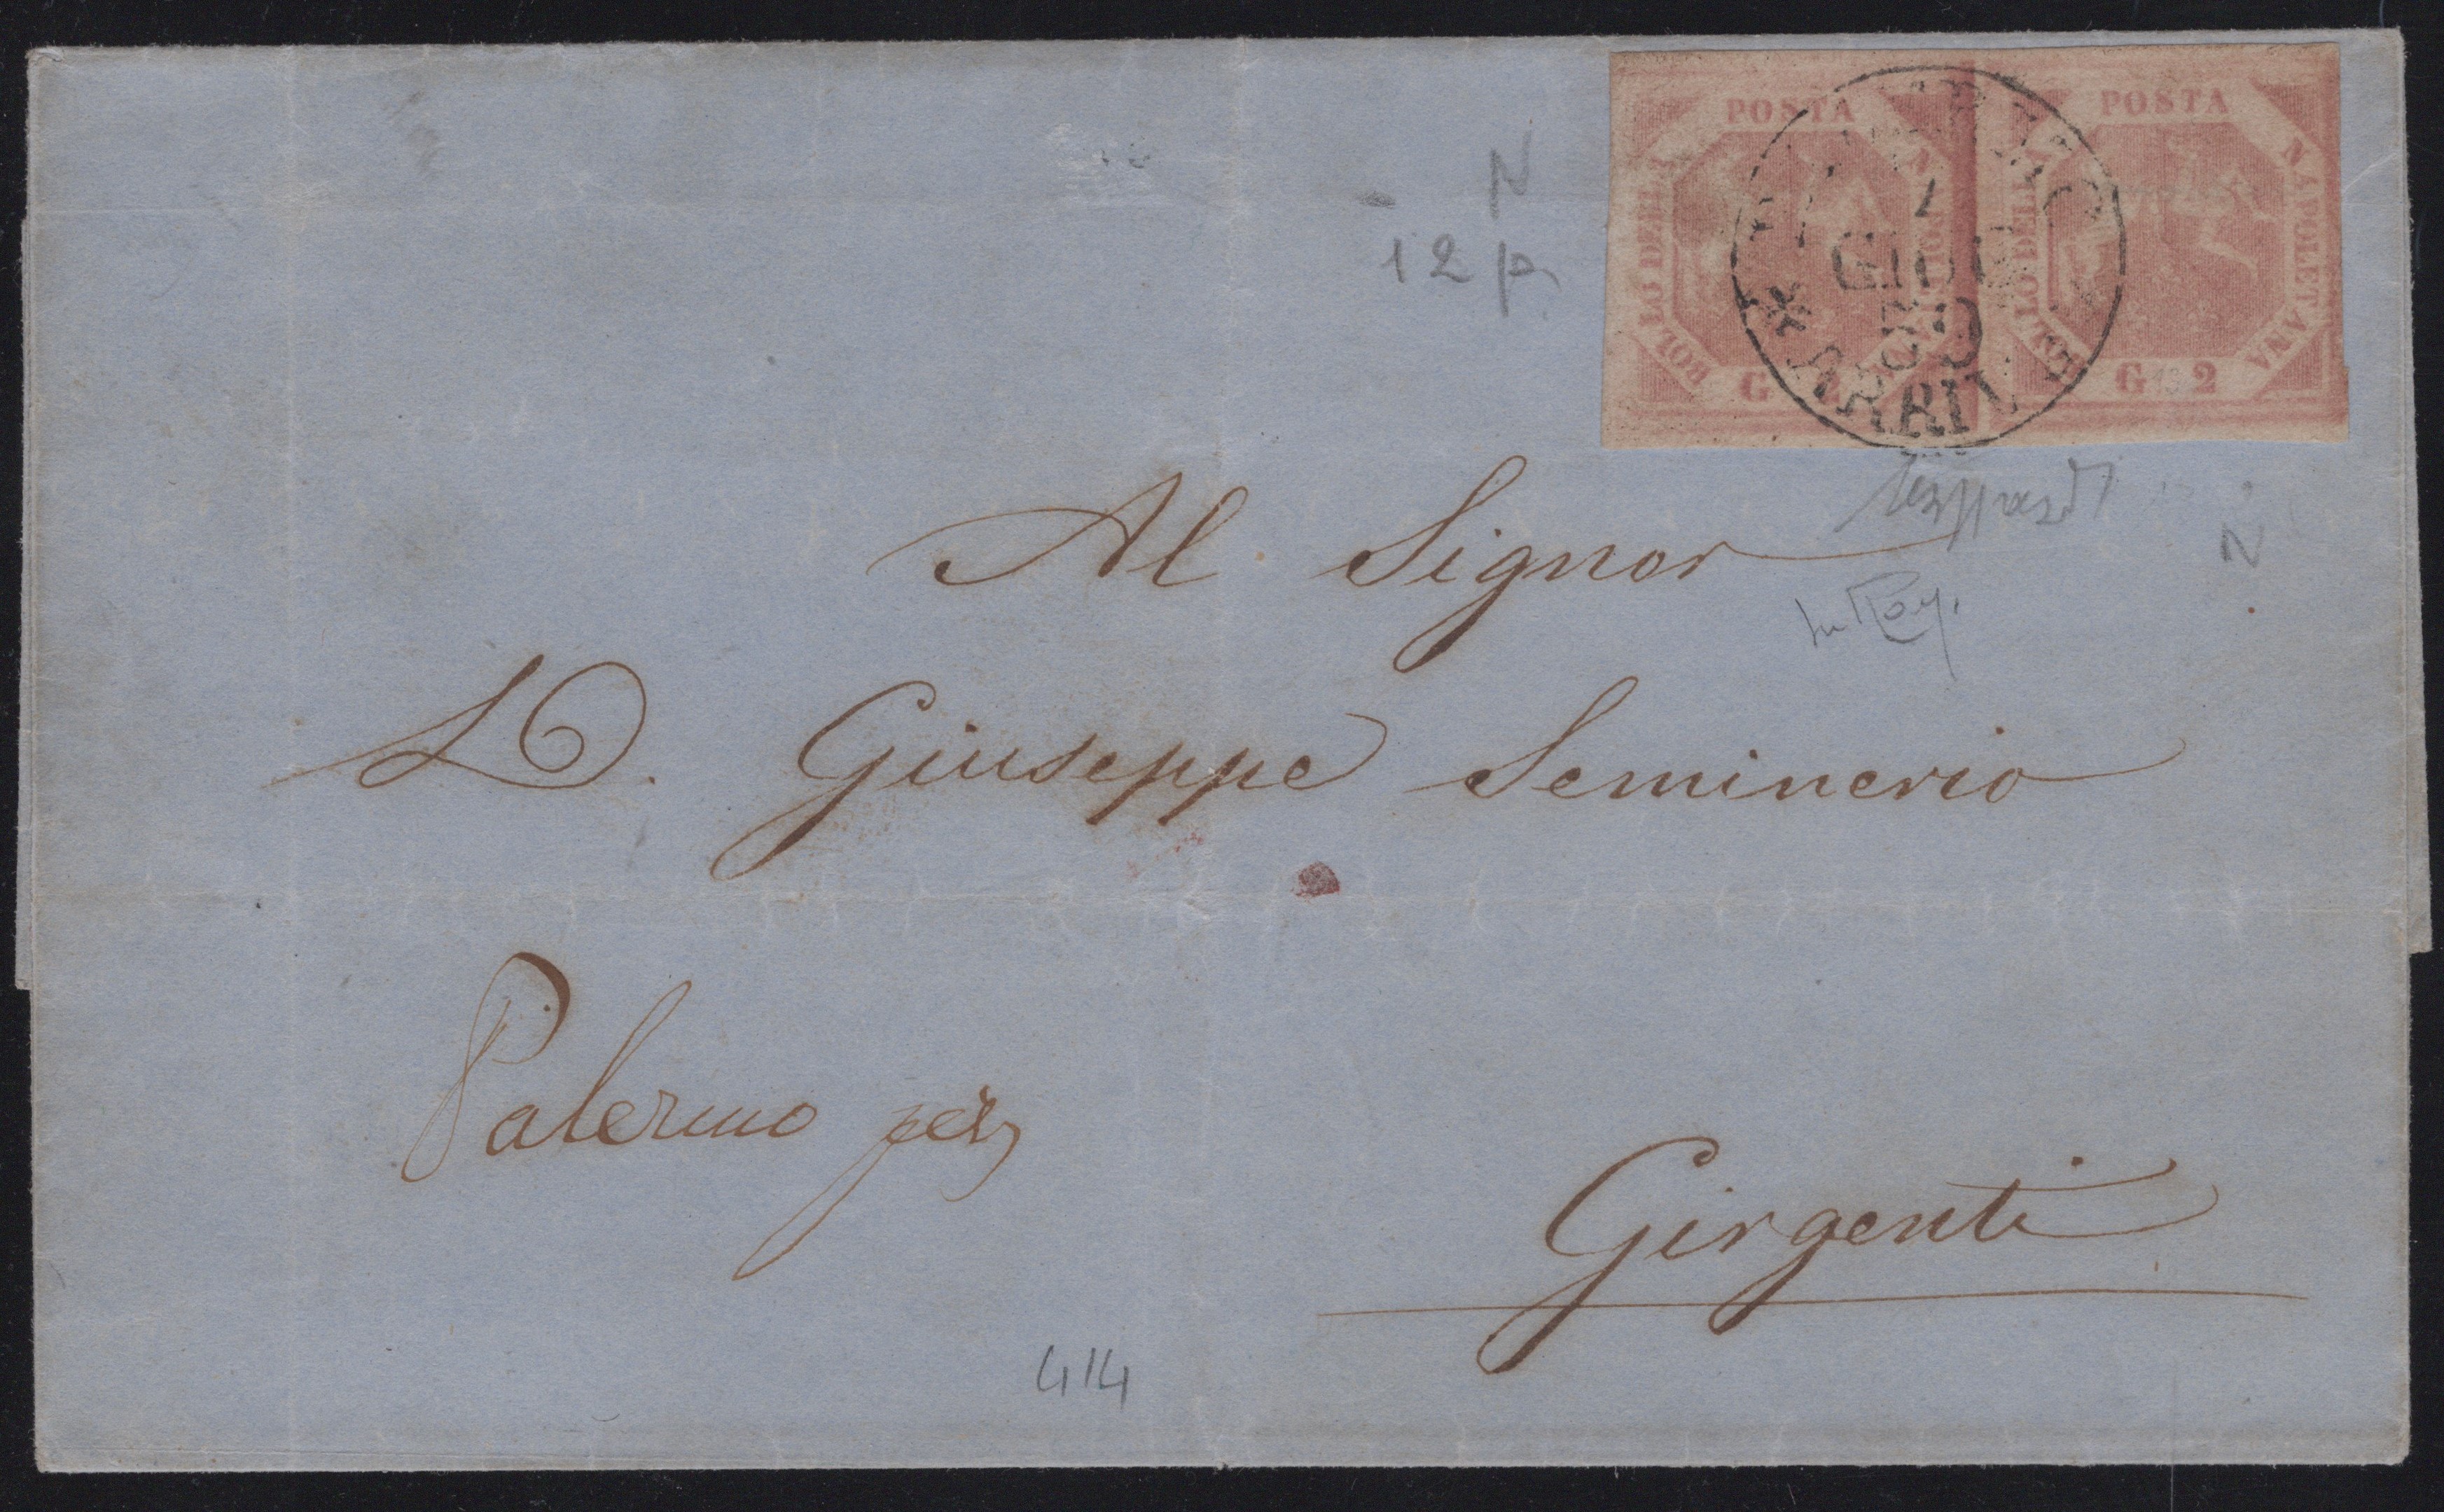 POSTA
BOLLO DELLA
POSTA
NAPOLETANA
BOLLO DELLA
G 2
GIUG
59
ARRIVO
N
12 p
Al Signor
N
D. Giuseppe Seminerio
Palermo per
Girgenti
414